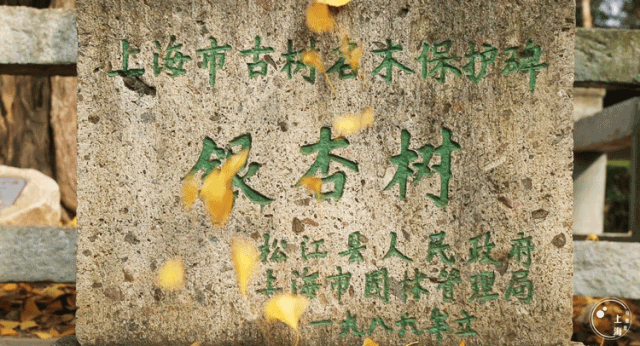 上海市古树名木保护碑
银杏树
松江县人民政府
上海市园林管理局
一九八六年立
上海